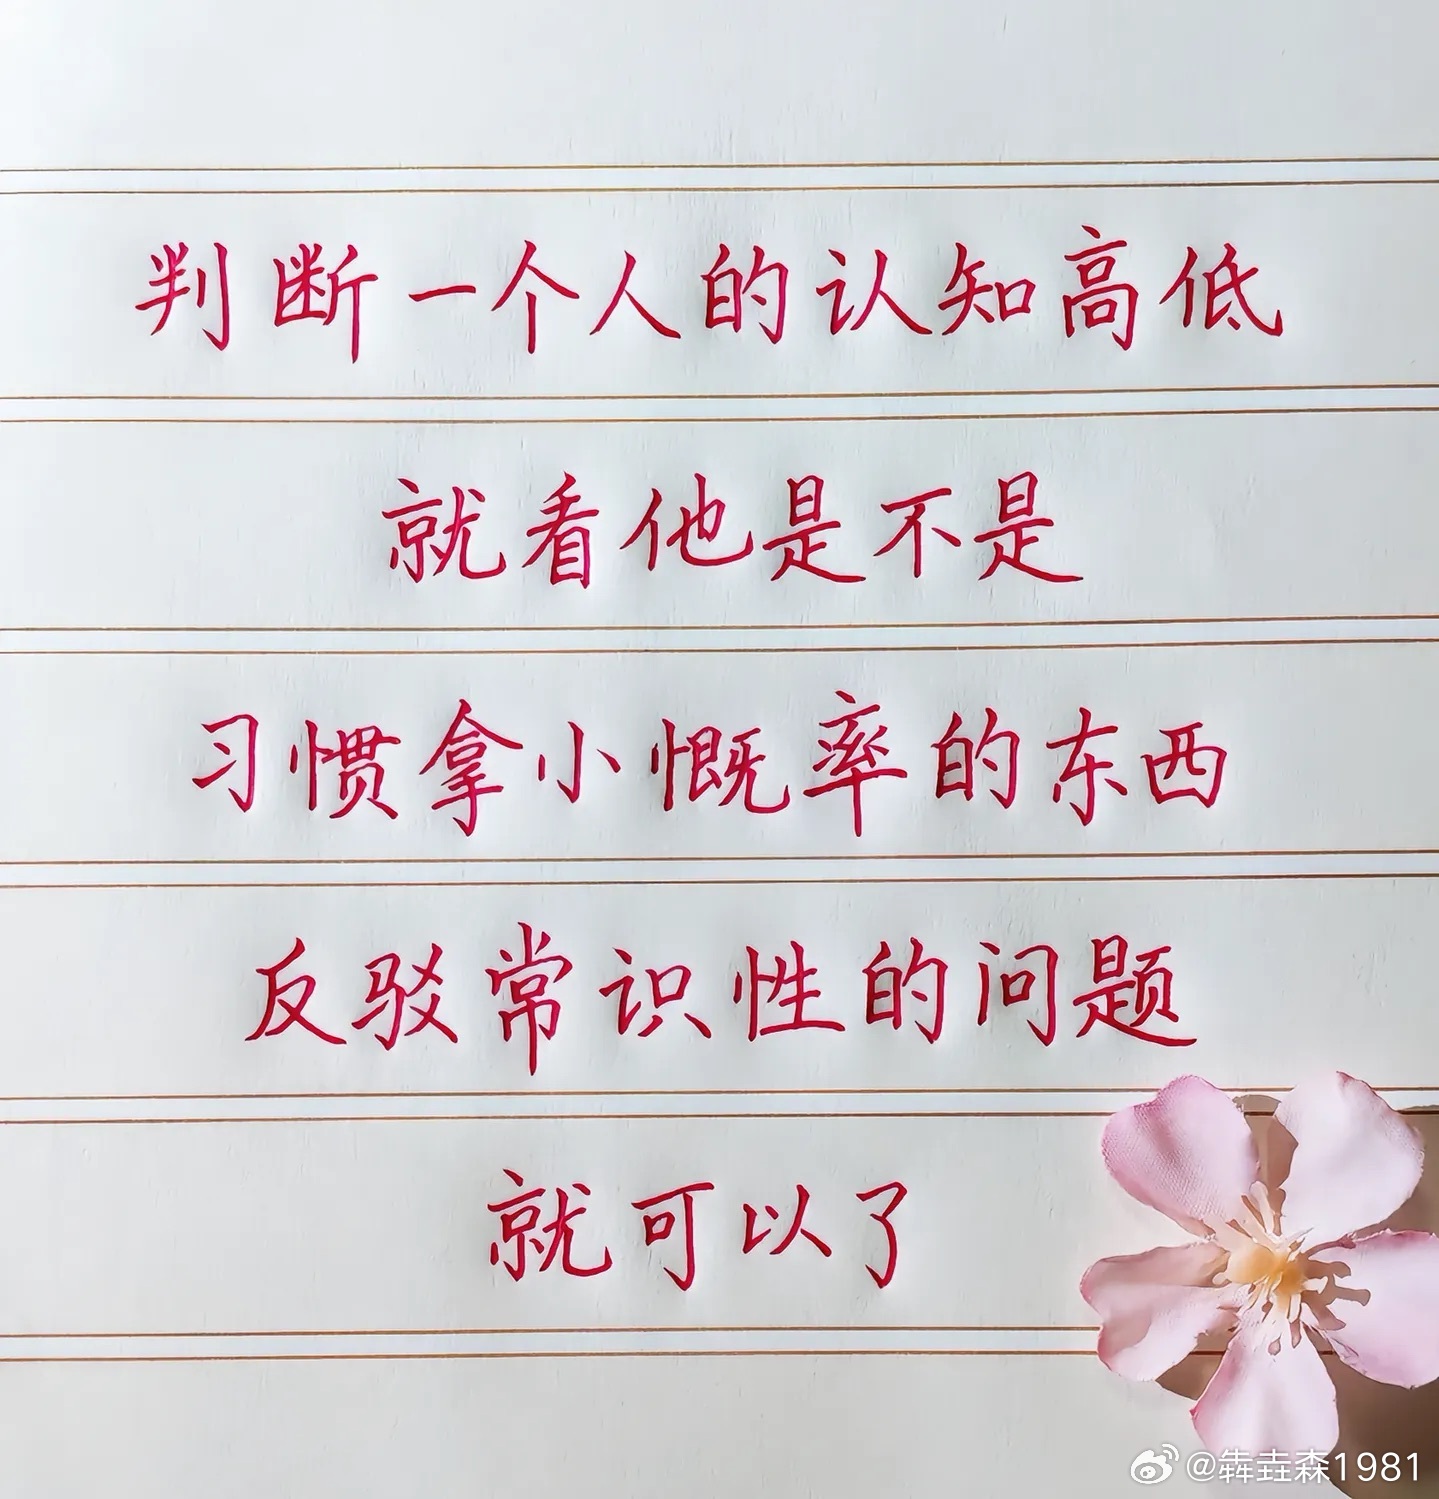 判断一个人的认知高低
就看他是不是
习惯拿小慨率的东西
反驳常识性的问题
就可以了
@犇垚森1981